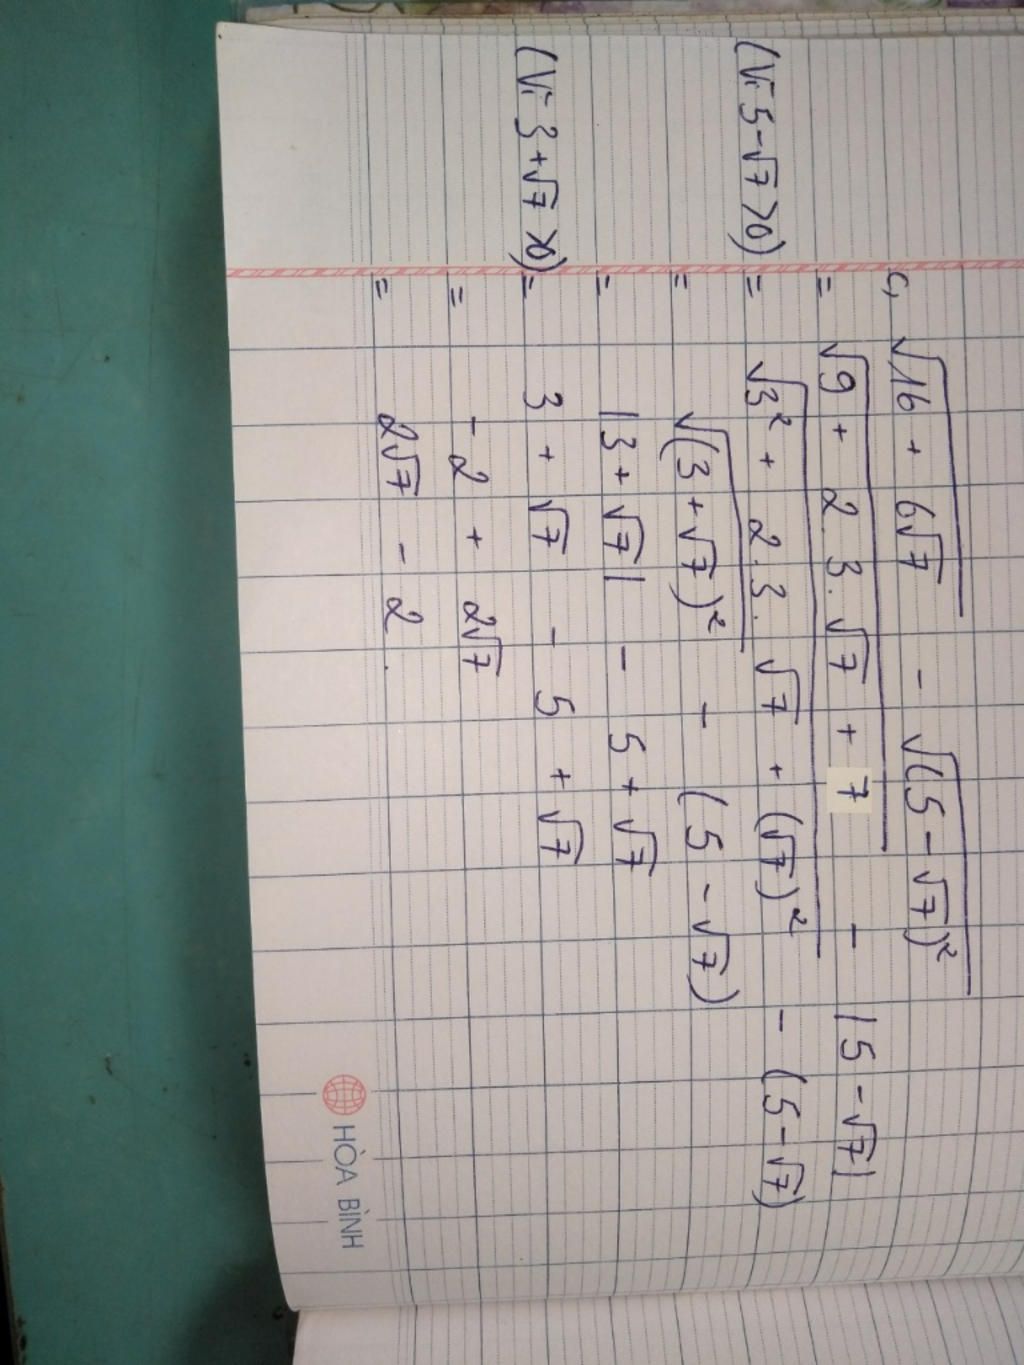 c, √(16 + 6√7) - √((5 - √7)²)
= √(9 + 2.3.√7 + 7) - |5 - √7|
(Vì 5 - √7 >0) = √(3² + 2.3.√7 + (√7)²) - (5 - √7)
= √((3 + √7)²) - (5 - √7)
= |3 + √7| - 5 + √7
(Vì 3 + √7 >0) = 3 + √7 - 5 + √7
= - 2 + 2√7
= 2√7 - 2.
HÒA BÌNH